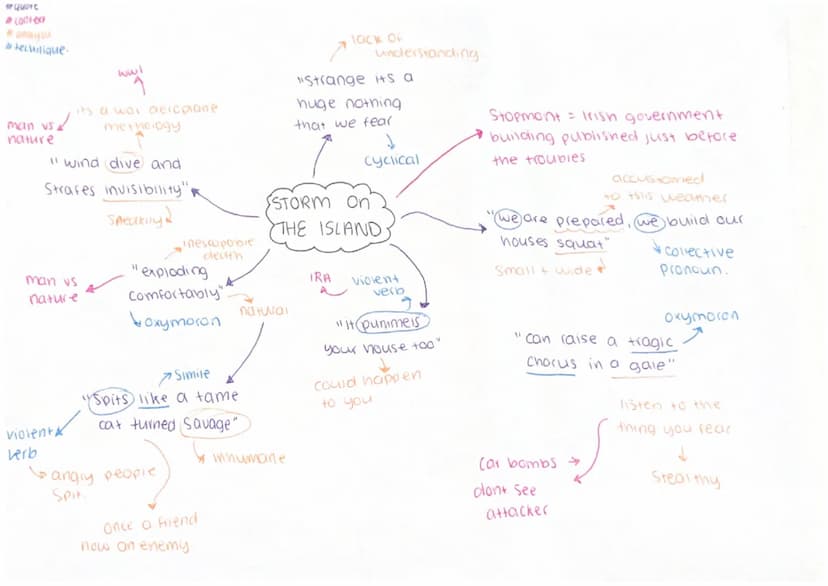 # quote
# context
# analysis
# technique.
lack of
understanding
"strange its a
huge nothing
that we fear
cyclical
ww1
its a war aeroplane
methology
man vs
nature
"wind dive and
strafes invisibility"
sneakily
STORM ON
THE ISLAND
Stopmont = Irish government
building published just before
the troubles
accustomed
to this weather
"we are prepared, we build our
houses squat"
small + wide
collective
pronoun.
inescapable
death
man vs
nature
"exploding
comfortably"
natural
oxymoron
IRA
violent
verb
"It pummels
your house too"
could happen
to you
oxymoron
"can raise a tragic
chorus in a gale"
listen to the
thing you fear
stealthy
car bombs
dont see
attacker
simile
"Spits like a tame
cat turned savage"
violent
verb
angry people
spit.
inhumane
once a friend
now an enemy